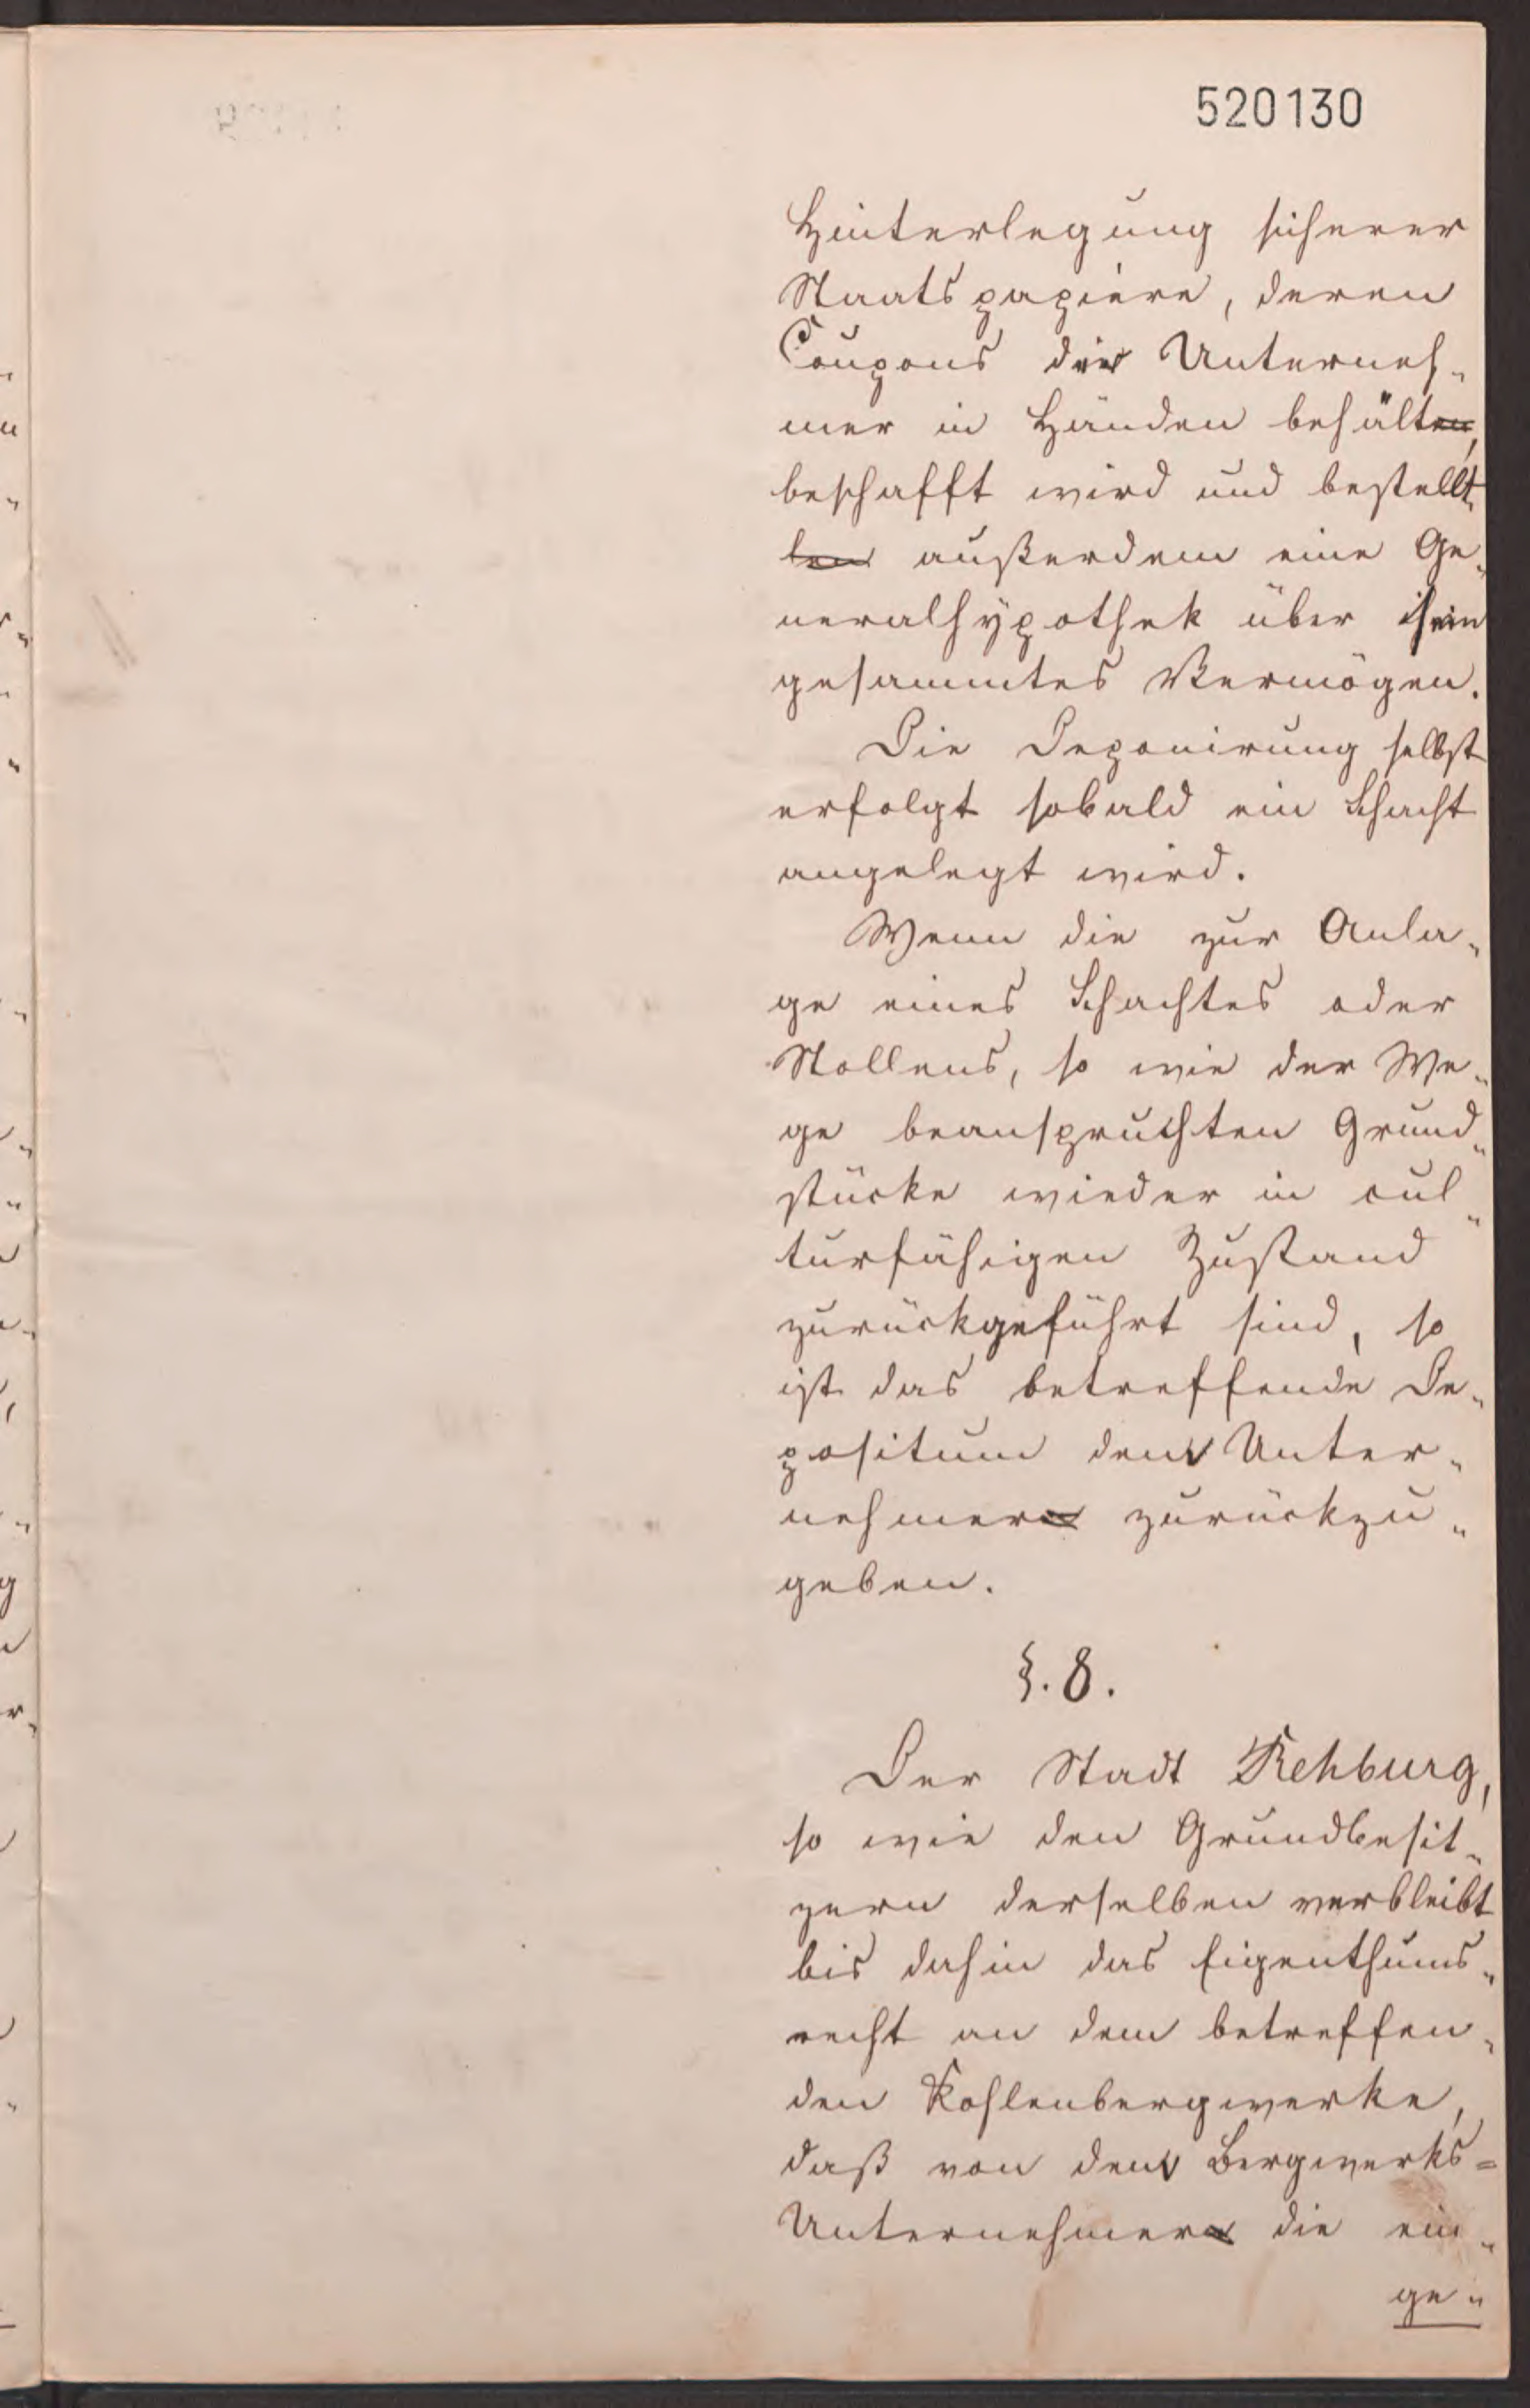 520130
Hinterlegung sicherer
Staatspapiere, deren
Coupons der Unterneh-
mer in Händen behält,
beschafft wird und bestellt
außerdem eine Ge-
neralhypothek über sein
gesammtes Vermögen.
Die Deponirung selbst
erfolgt sobald ein Schacht
angelegt wird.
Wenn die zur Anla-
ge eines Schachtes oder
Stollens, so wie der We-
ge beanspruchten Grund-
stücke wieder in cul-
turfähigen Zustand
zurückgeführt sind, so
ist das betreffende De-
positum dem Unter-
nehmer zurückzu-
geben.
§. 8.
Der Stadt Rehburg,
so wie den Grundbesit-
zern derselben verbleibt
bis dahin das Eigenthums-
recht an dem betreffen-
den Kohlenbergwerke,
daß von dem Bergwerks-
Unternehmer die ein-
ge-